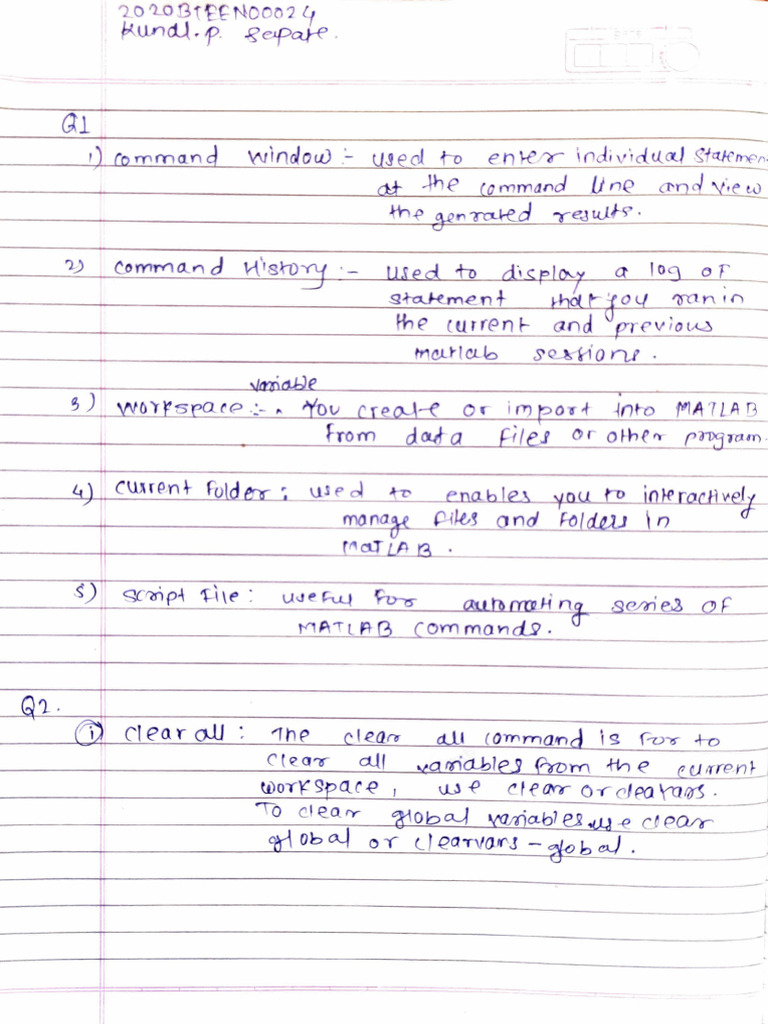 2020BTEEN00024
Kunal.p. Sepate.
Q1
1) Command Window :- used to enter individual statemen
at the command line and view
the genrated results.
2) Command History :- used to display a log of
statement that you ran in
the current and previous
matlab sessions.
variable
3) Workspace :- ^ You create or import into MATLAB
from data files or other program.
4) Current Folder : used to enables you to interactively
manage files and folders in
MATLAB .
5) Script File : useful for automating series of
MATLAB commands.
Q2.
i) Clear all : The clear all command is for to
clear all variables from the current
workspace, use clear or clearvars.
To clear global variables, use clear
global or clearvars - global.